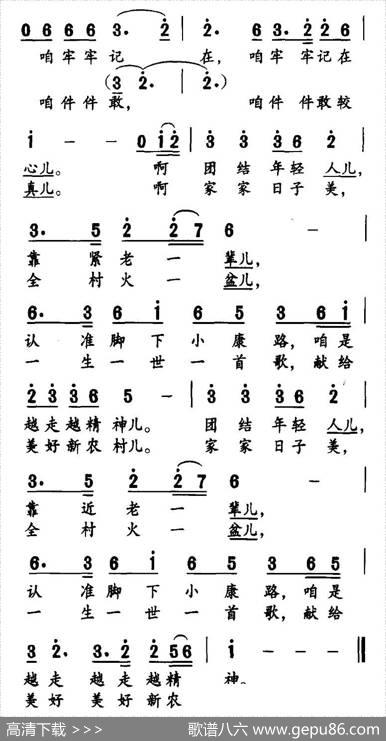 0 6 6 6 6 3· 2 | 2· 6 3· 2 2 6
咱牢牢记 在, 咱牢牢记在
(3 2· | 2·)
咱件件敢, 咱件件敢较
i - - 0 i 2 | 3 3 3 6 2
心儿。 啊 团结年轻人儿,
真儿。 啊 家家日子美,
3· 5 2 2 7 6 -
靠紧老一辈儿,
全村火一盆儿,
6· 3 6 i 6 5 3 6 i
认准脚下小康路,咱是
一生一世一首歌,献给
2 3 3 6 5 - 3 3 3 6 2
越走越精神儿。 团结年轻人儿,
美好新农村儿。 家家日子美,
3· 5 2 2 7 6 -
靠近老一辈儿,
全村火一盆儿,
6· 3 6 i 6 5 3 6 5
认准脚下小康路,咱是
一生一世一首歌,献给
3 2· 3· 2 2 5 6 | i - -
越走越走越精神。
美好美好新农
高清下载 >>> 歌谱八六 www.gepu86.com